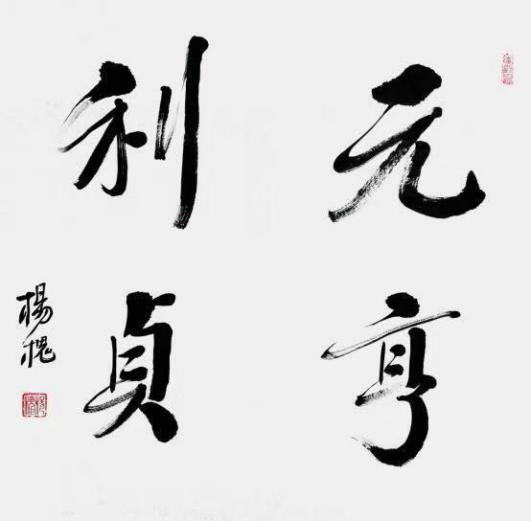 元亨
利貞
楊槐